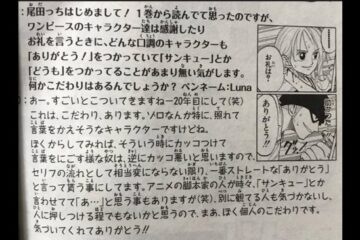 : 尾田っちはじめまして！1巻から読んでて思ったのですが、
ワンピースのキャラクター達は感謝したり
お礼を言うときに、どんな口調のキャラクターも
「ありがとう！」をつかっていて「サンキュー」とか
「どうも」をつかってることがあまり無い気がします。
何かこだわりはあるんでしょうか？ペンネーム:Luna
: あー。すごいとこついてきますねー20年目にして(笑)
これは、こだわり、あります。ゾロなんか特に、照れて
言葉をかえそうなキャラクターですけどね。
ぼくからしてみれば、そういう時にカッコつけて
言葉をにごす様な奴は、逆にカッコ悪いと思いますので、
セリフの流れとして相当変にならない限り、一番ストレートな「ありがとう」
と言って貰う事にしてます。アニメの脚本家の人が時々、「サンキュー」とか
言わせてて「あ…」と思う事もありますが(笑)、別に観てる人も気づかないし、
人に押しつける程でもないかと思うので、まあ、ぼく個人のこだわりです。
気づいてくれてありがとう!!
お礼は？
ありがとう!!